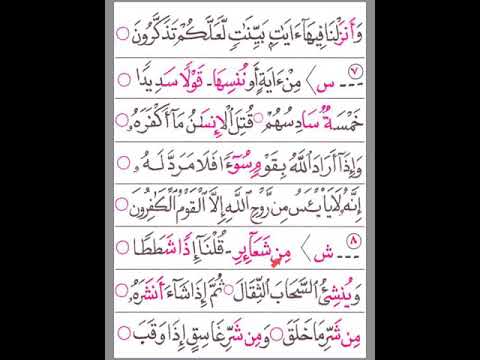 وَأَنزَلْنَا فِيهَآ ءَايَٰتٍۭ بَيِّنَٰتٍ لَّعَلَّكُمْ تَذَكَّرُونَ ○
٧ --- س〉 مِنْ ءَايَةٍ أَوْ نُنسِهَا - قَوْلًا سَدِيدًا ○
خَمْسَةٌ سَادِسُهُمْ ○ قُتِلَ ٱلْإِنسَٰنُ مَآ أَكْفَرَهُۥ ○
وَإِذَآ أَرَادَ ٱللَّهُ بِقَوْمٍ سُوٓءًا فَلَا مَرَدَّ لَهُۥ ○
إِنَّهُۥ لَا يَا۟يْـَٔسُ مِن رَّوْحِ ٱللَّهِ إِلَّا ٱلْقَوْمُ ٱلْكَٰفِرُونَ ○
٨ --- ش〉 مِن شَعَآئِرِ - قُلْنَآ إِذًا شَطَطًا ○
وَيُنشِئُ ٱلسَّحَابَ ٱلثِّقَالَ ○ ثُمَّ إِذَا شَآءَ أَنشَرَهُۥ ○
مِن شَرِّ مَا خَلَقَ ○ وَمِن شَرِّ غَاسِقٍ إِذَا وَقَبَ ○